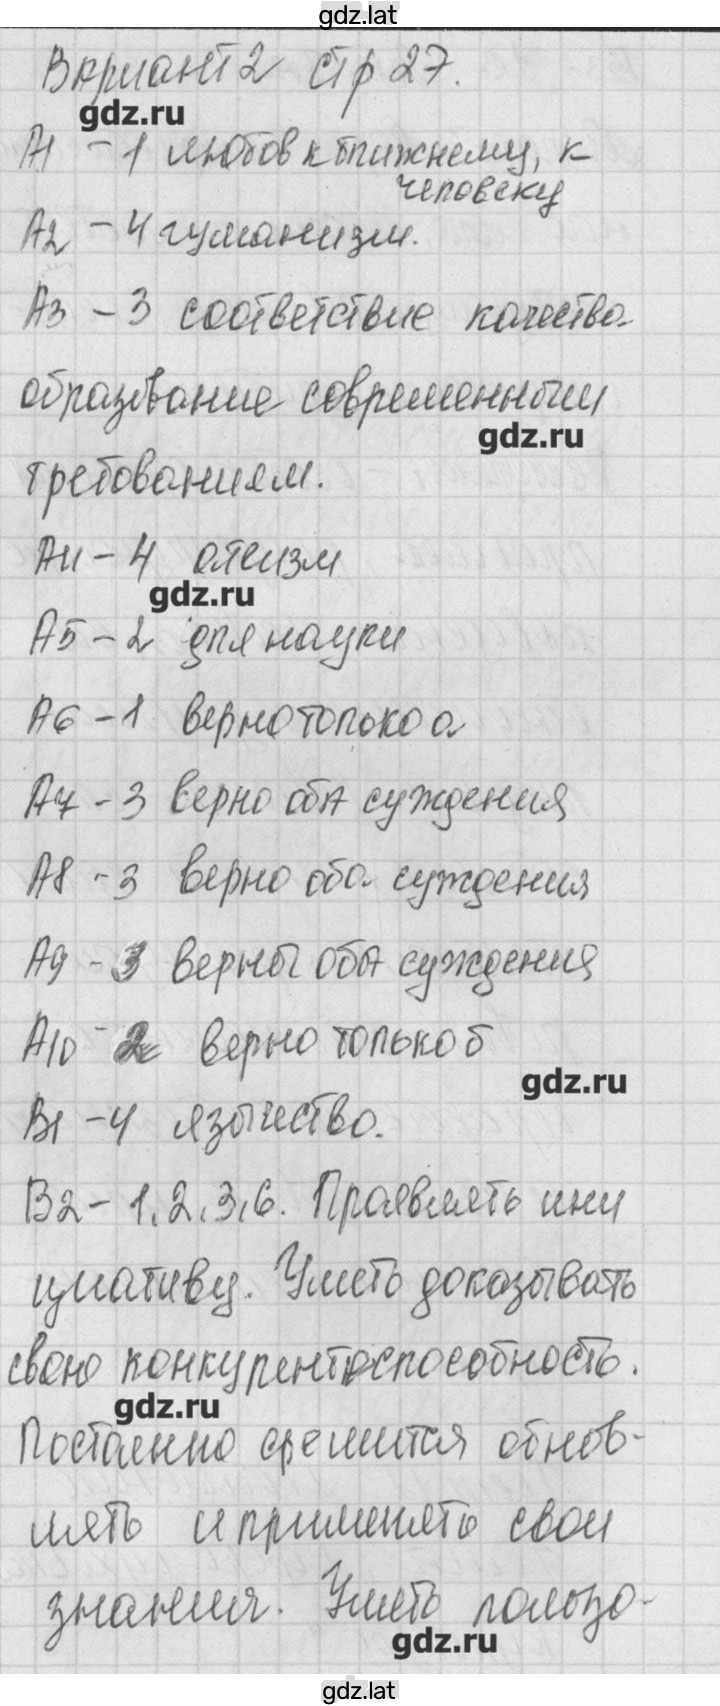 gdz.lat
Вариант 2 стр 27.
gdz.ru
А1 - 1 любов к ближнему, к
человеку
А2 - 4 гуманизм.
А3 - 3 соответствие качества
образование современным
gdz.ru
требованиям.
А4 - 4 атеизм
gdz.ru
А5 - 2 для науки
А6 - 1 верно только а
А7 - 3 верно оба суждения
А8 - 3 верно оба суждения
А9 - 3 верны оба суждения
А10 - 2 верно только б
gdz.ru
В1 - 4 язычество.
В2 - 1,2,3,6. Проявлять ини
циативу. Уметь доказывать
свою конкурентоспособность.
gdz.ru
Постоянно сремится обнов-
лять и применять свои
знания. Уметь пользо-
gdz.ru
gdz.lat